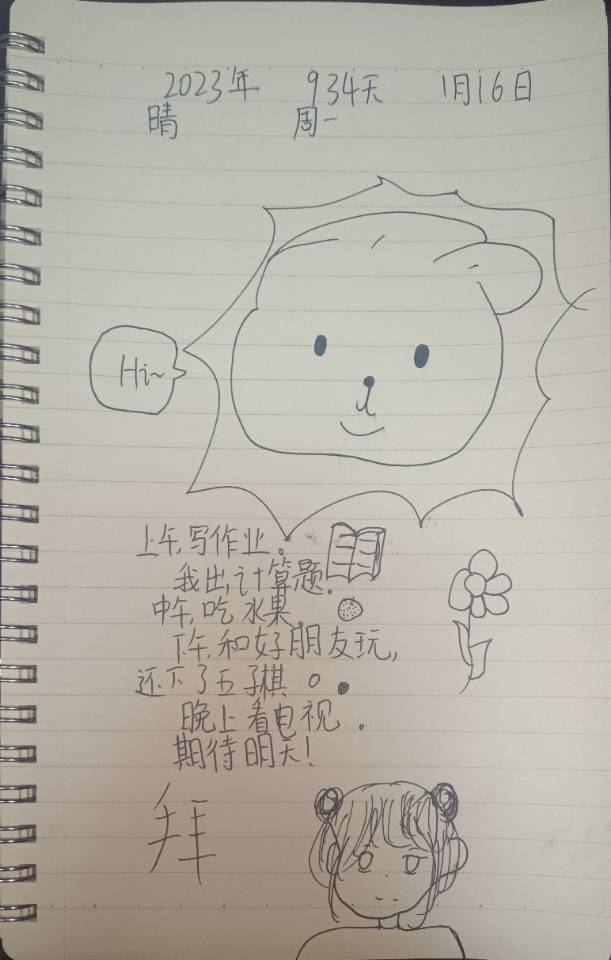 2023年 934天 1月16日
晴 周一
Hi~
上午,写作业。
我出,计算题.
中午,吃水果.
下午,和好朋友玩,
还下了五子棋
晚上看电视.
期待明天!
拜